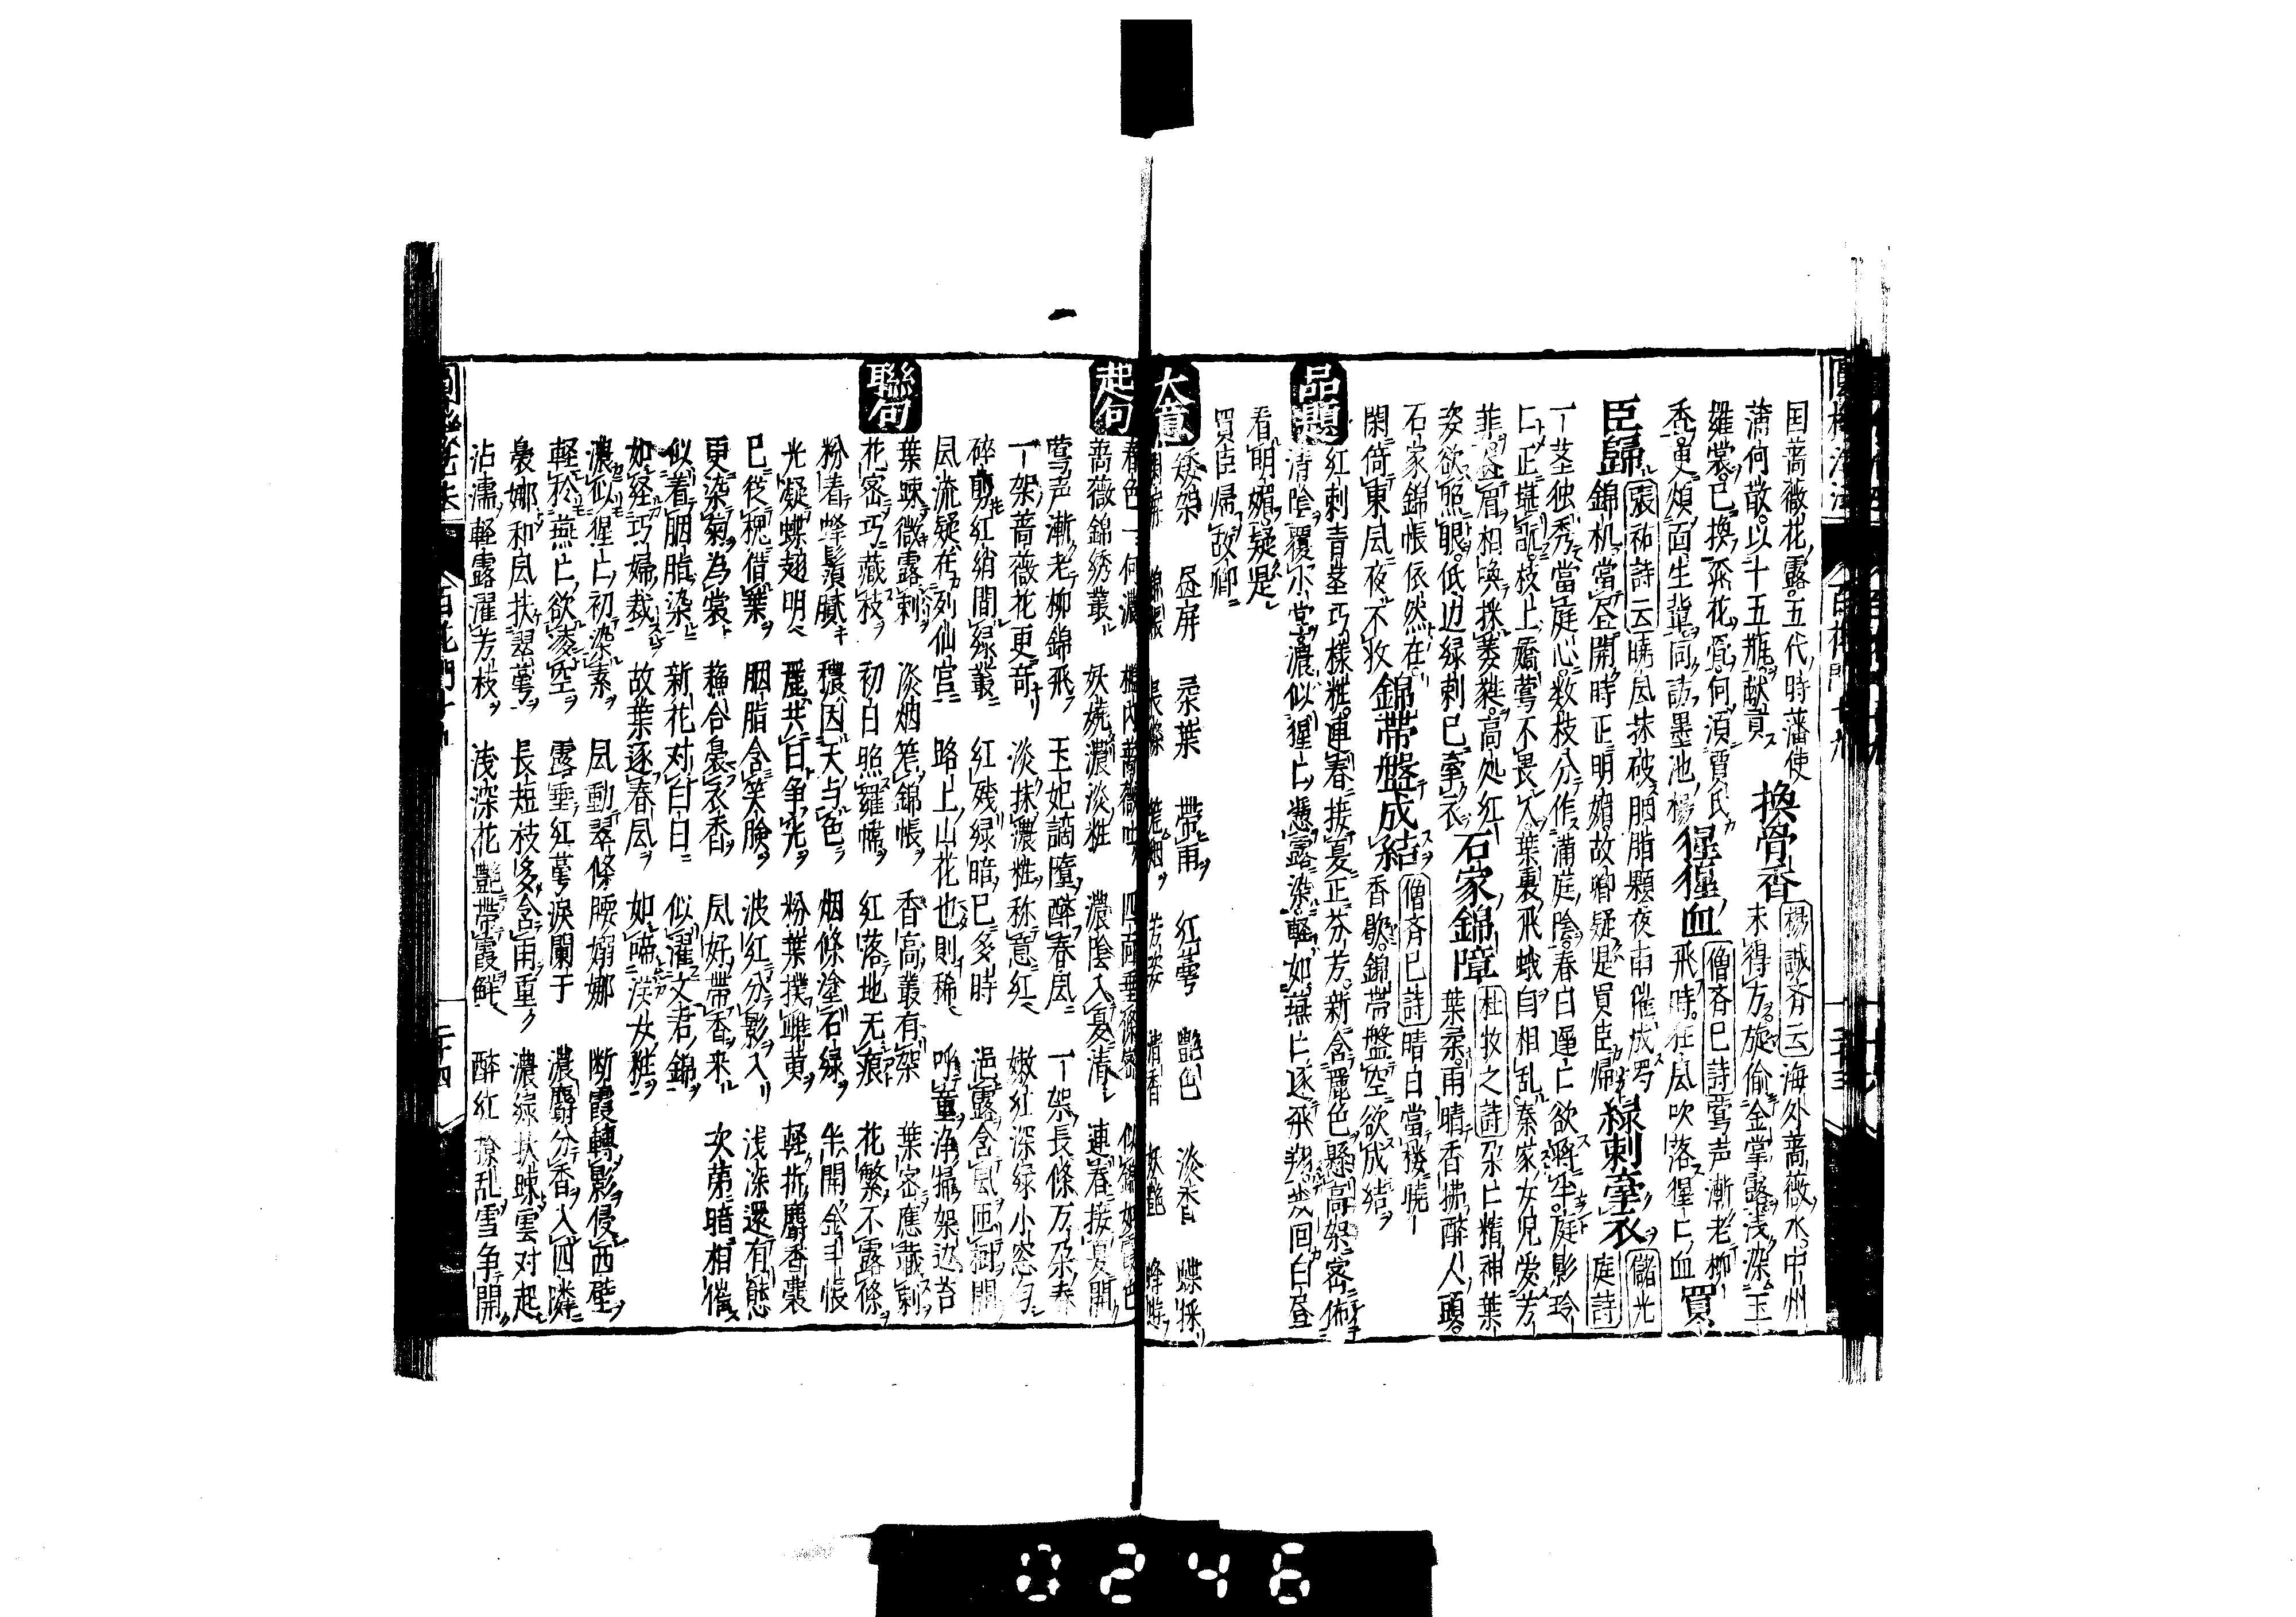 国薔薇花露五代時藩使
蒲何散以十五瓶献貢 換骨香 楊誠斉云 海外薔薇水中州
未得方旋偷金掌露浅染玉
羅裳已換 骨香何須賈氏
香更煩面生葺同訪墨池楊 猩猩血 僧斉已詩 鶯声漸老柳
飛時狂風吹落猩〻血 買
臣歸 張祐詩云 暁風抹破胭脂顆夜雨催成蜀
錦机當昼開時正明媚故郷疑是買臣帰 緑刺牽衣 儲光
庭詩
一茎独秀當庭心数枝分作満庭陰春日遅〻欲將半庭影玲
〻正堪翫枝上嬌鶯不畏人葉裏飛蛾自相乱秦家女児愛芳
菲昼眉相喚採葳蕤高処紅
姿欲照眼低辺緑刺已牽衣 石家錦障 杜牧之詩 朶〻精神葉
葉柔雨晴香拂酔人頭
石家錦帳依然在
閑倚東風夜不收 錦帶盤成結 僧斉已詩 晴白當楼暁
香歇錦帯盤空欲成結
品題 紅刺青茎巧様粧連春接夏正芬芳新含麗色懸高架密佈
清陰覆小堂濃似猩〻憑露染軽如燕〻逐飛翔幾回白昼
看明媚疑是
買臣帰故郷
大意 矮架 昼屏 柔葉 帯雨 紅萼 艶色 淡香 蝶採
錦帳 長條 籠烟 芳姿 清香 妖艶 蜂遊
起句 春色一何濃 檻内薔薇吐 四面垂條密 似錦如霞色
薔薇錦绣叢 妖嬈濃淡粧 濃陰入夏清 連春接夏開
鶯声漸老柳錦飛 玉妃謫墮醉春風 一架長條万朶春
一架薔薇花更奇 淡抹濃粧称意紅 嫩紅深緑小窓匀
碎剪紅綃間緑叢 紅残緑暗已多時 浥露含風匝樹開
風流疑在列仙宫 路上山花也則稀 呼童浄掃架辺苔
聯句 葉踈微露刺 淡烟篭錦帳 香高叢有架 葉密應蔵刺
花密巧蔵枝 初白照羅幃 紅落地无痕 花繁不露條
粉着蜂鬚膩 穠因天与色 烟條塗石緑 半開金斗帳
光凝蝶翅明 麗共日争光 粉葉撲雌黄 軽折麝香嚢
已從槐借葉 胭脂含笑臉 波紅分影入 浅深還有態
更染菊為裳 蘓合裛衣香 風好帯香来 次第暗相催
似着胭脂染 新花对白日 似濯文君錦
如経巧婦裁 故葉逐春風 如啼淡女粧
濃似猩〻初染素 風動翠條腰嫋娜 断霞轉影侵西壁
軽於燕〻欲凌空 露垂紅萼淚闌干 濃麝分香入四隣
裊娜和風扶翠蔓 長短枝多含雨重 濃緑扶踈雲对起
沾濡軽露濯芳枝 浅深花艶帶霞鮮 醉紅撩乱雪争開
二十四
0246